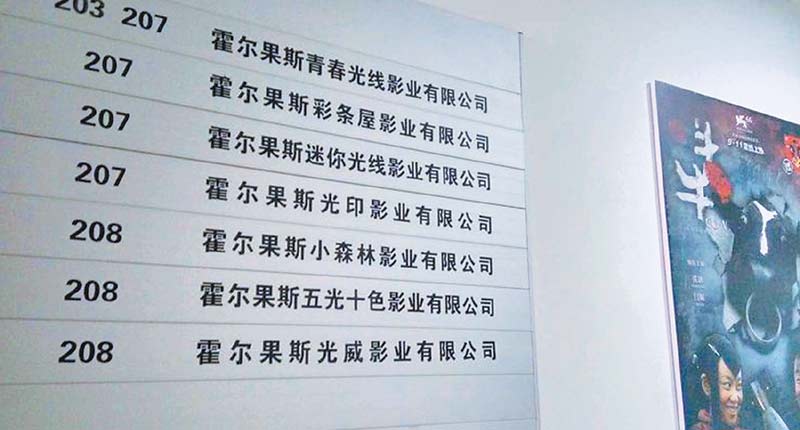 203 207 霍尔果斯青春光线影业有限公司
207 霍尔果斯彩条屋影业有限公司
207 霍尔果斯迷你光线影业有限公司
207 霍尔果斯光印影业有限公司
208 霍尔果斯小森林影业有限公司
208 霍尔果斯五光十色影业有限公司
208 霍尔果斯光威影业有限公司
66
斗牛